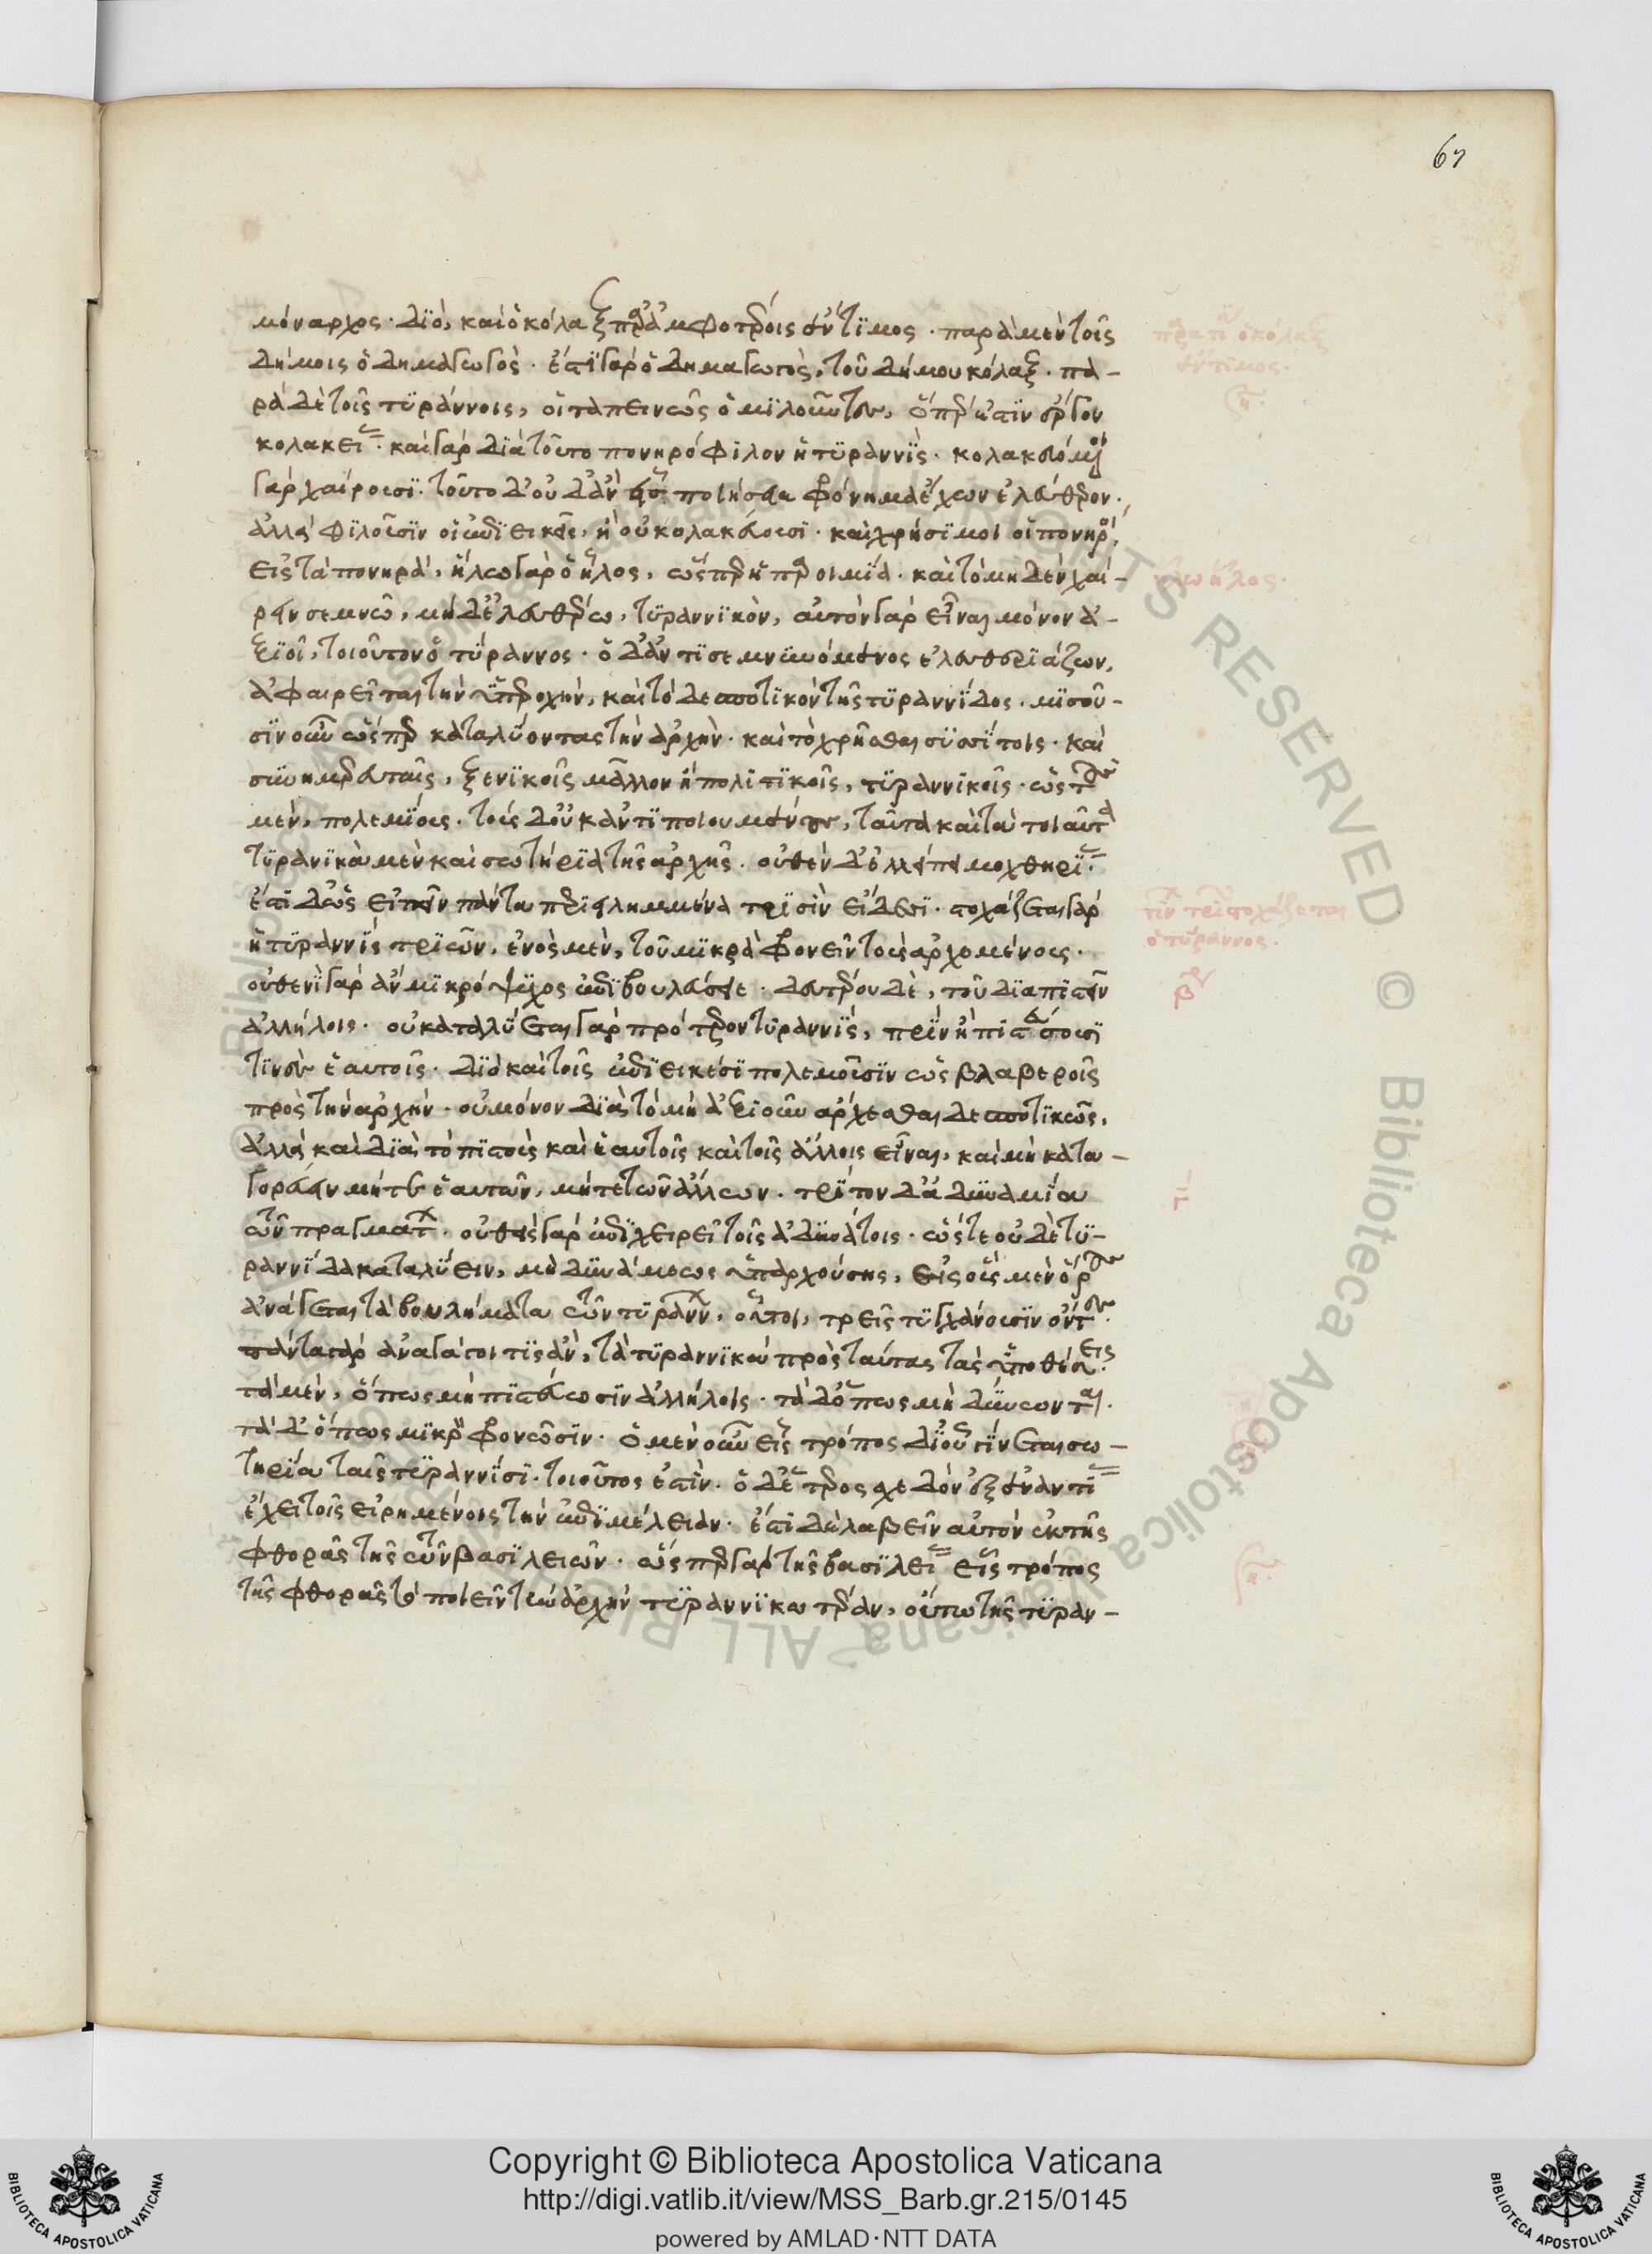 67
μόναρχος· διὸ, καὶ ὁ κόλαξ παρ' ἀμφοτέροις ἔντιμος· παρὰ μὲν τοῖς
δήμοις ὁ δημαγωγὸς· ἔστι γὰρ ὁ δημαγωγὸς, τοῦ δήμου κόλαξ· πα-
ρὰ δὲ τοῖς τυράννοις, οἱ ταπεινῶς ὁμιλοῦντες, ὅπερ ἐστὶν ἔργον
κολακείας· καὶ γὰρ διὰ τοῦτο πονηρόφιλον ἡ τυραννὶς· κολακευόμενοι
γὰρ χαίρουσι· τοῦτο δ' οὐδ' ἂν εἷς ποιήσειε φρόνημα ἔχων ἐλεύθερον·
ἀλλὰ φιλοῦσιν οἱ ἐπιεικεῖς, ἢ οὐ κολακεύουσι· καὶ χρήσιμοι οἱ πονηροὶ
εἰς τὰ πονηρά, ἥλῳ γὰρ ὁ ἧλος, ὥσπερ ἡ παροιμία· καὶ τὸ μηδενὶ χαί-
ρειν σεμνῷ, μηδ' ἐλευθέρῳ, τυραννικὸν, αὐτὸν γὰρ εἶναι μόνον ἀ-
ξιοῖ, τοιοῦτον ὁ τύραννος· ὁ δ' ἀντισεμνυνόμενος ἐλευθεριάζων,
ἀφαιρεῖται τὴν ὑπεροχὴν, καὶ τὸ δεσποτικὸν τῆς τυραννίδος· μισοῦ-
σιν οὖν ὥσπερ καταλύοντας τὴν ἀρχὴν· καὶ τὸ χρῆσθαι συσσίτοις· καὶ
συνημερευταῖς, ξενικοῖς μᾶλλον ἢ πολιτικοῖς, τυραννικοῖς· ὡς τοὺς
μὲν, πολεμίους· τοὺς δ' οὐκ ἀντιποιουμένους, ταῦτα καὶ τὰ τοιαῦτα
τυρανικὰ μὲν καὶ σωτήρια τῆς ἀρχῆς· οὐθὲν δ' ἐλλείπει μοχθηρίας·
ἔστι δ' ὡς εἰπεῖν πάντα περιειλημμένα τρισὶν εἴδεσι· στοχάζεται γὰρ
ἡ τυραννὶς τριῶν, ἑνὸς μὲν, τοῦ μικρὰ φρονεῖν τοὺς ἀρχομένους·
οὐθενὶ γὰρ ἂν μικρόψυχος ἐπιβουλεύσειε· δευτέρου δὲ, τοῦ διαπιστεῖν
ἀλλήλοις· οὐ καταλύεται γὰρ πρότερον τυραννὶς, πρὶν ἢ πιστεύσουσι
τινες ἑαυτοῖς· διὸ καὶ τοῖς ἐπιεικέσι πολεμοῦσιν ὡς βλαβεροῖς
πρὸς τὴν ἀρχὴν· οὐ μόνον διὰ τὸ μὴ ἀξιοῦν ἄρχεσθαι δεσποτικῶς,
ἀλλὰ καὶ διὰ τὸ πιστοὺς καὶ ἑαυτοῖς καὶ τοῖς ἄλλοις εἶναι, καὶ μὴ κατα-
γορεύειν μήτε ἑαυτῶν, μήτε τῶν ἄλλων· τρίτον δ' ἀδυναμία
τῶν πραγμάτων· οὐθεὶς γὰρ ἐπιχειρεῖ τοῖς ἀδυνάτοις· ὥστε οὐδὲ τυ-
ραννίδα καταλύειν, μὴ δυνάμεως ὑπαρχούσης, εἰς οὓς μὲν ὅρους
ἀνάγεται τὰ βουλήματα τῶν τυράννων, οὗτοι, τρεῖς τυγχάνουσιν ὄντες·
πάντα γὰρ ἀναγάγοι τις ἂν, τὰ τυραννικὰ πρὸς ταύτας τὰς ὑποθέσεις·
τὰ μὲν, ὅπως μὴ πιστεύωσιν ἀλλήλοις· τὰ δ' ὅπως μὴ δύνωνται·
τὰ δ' ὅπως μικρὸν φρονῶσιν· ὁ μὲν οὖν εἷς τρόπος δι' οὗ γίνεται σω-
τηρία ταῖς τυραννίσι· τοιοῦτος ἐστὶν· ὁ δ' ἕτερος σχεδὸν ἐξ ἐναντίας
ἔχει τοῖς εἰρημένοις τὴν ἐπιμέλειαν· ἔστι δὲ λαβεῖν αὐτὸν ἐκ τῆς
φθορᾶς τῆς τῶν βασιλειῶν· ὥσπερ γὰρ τῆς βασιλείας εἷς τρόπος
τῆς φθορᾶς τὸ ποιεῖν τὴν ἀρχὴν τυραννικωτέραν, οὕτω τῆς τυραν-
παρὰ τίσιν ὁ κόλαξ
ἔντιμος·
ἥλῳ ἧλος·
τίνων τριῶν στοχάζεται
ὁ τύραννος·
β
γ
Copyright © Biblioteca Apostolica Vaticana
http://digi.vatlib.it/view/MSS_Barb.gr.215/0145
powered by AMLAD·NTT DATA
BIBLIOTECA APOSTOLICA VATICANA
BIBLIOTECA APOSTOLICA VATICANA
© Biblioteca Apostolica Vaticana ALL RIGHTS RESERVED